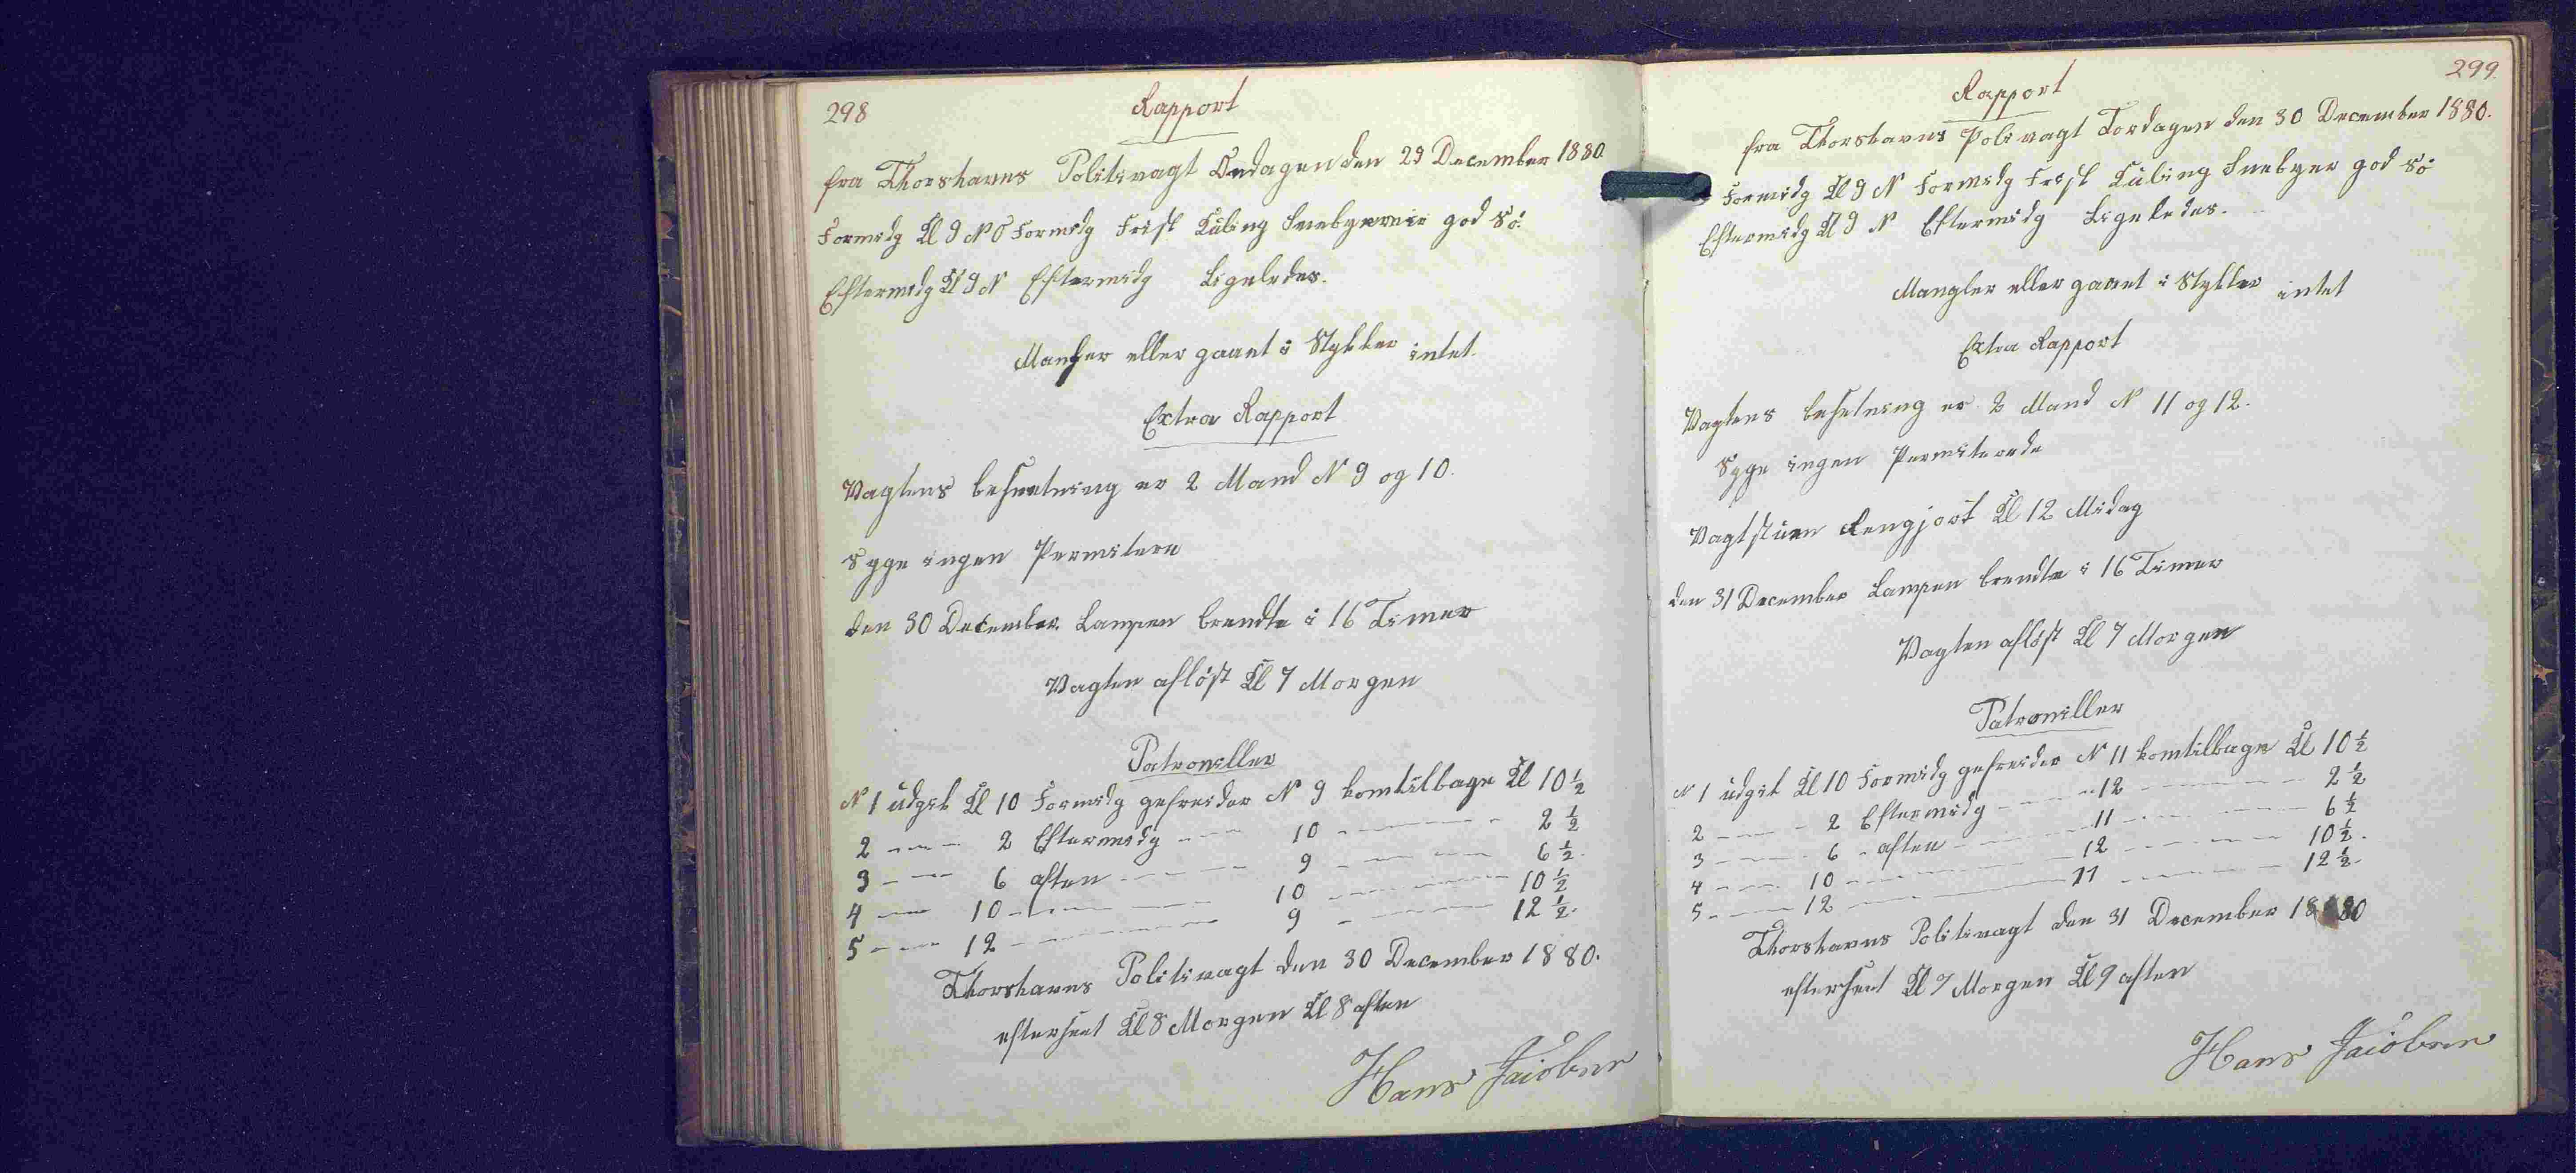 298
Rapport
fra Thorshavns Politivagt Onsdagen den 29 December 1880
Formidg Kl 9 NO Formidg Frisk Kuling Snebyger god Sö.
Eftermidg Kl 9 N Eftermidg Ligeledes.
Mangler eller gaaet i Stykker intet.
Extra Rapport
Vagtens besætning er 2 Mand N 9 og 10.
Syge ingen Permitere
den 30 December Lampen brendte i 16 Timer
Vagten aflöst Kl 7 Morgen
Patroniller
N 1 udgik Kl 10 Formidg gefreider N 9 komtilbage Kl 10 ½
2 — — 2 Eftermidg — — 10 — — 2 ½
3 — — 6 aften — — 9 — — 6 ½.
4 — 10 — — 10 — — 10 ½
5 — — 12 — — 9 — — 12 ½.
Thorshavns Politivagt den 30 December 1880.
efterseet Kl 8 Morgen Kl 8 aften
Hans Jacobsen
299.
Rapport
fra Thorshavns Polivagt Tordagen den 30 December 1880.
Formidg Kl 9 N Formidg Frisk Kuling Snebyer god Sö
Eftermidg Kl 9 N Eftermidg Ligeledes.
Mangler eller gaaet i Stykker intet
Extra Rapport
Vagtens besetning er 2 Mand N 11 og 12.
Syge ingen Permiterede
Vagtstuen Rengjort Kl 12 Midag
den 31 December Lampen brendte i 16 Timer
Vagten aflöst Kl 7 Morgen
Patroniller
N 1 udgik Kl 10 Formidg gefreider N 11 komtilbage Kl 10 ½
2 — — 2 Eftermidg — — 12 — — 2 ½
3 — — 6 aften — — 11 — — 6 ½
4 — — 10 — — 12 — — 10 ½.
5 — — 12 — — 11 — — 12 ½.
Thorshavns Politivagt den 31 December 1880
efterseet Kl 7 Morgen Kl 9 aften
Hans Jacobsen